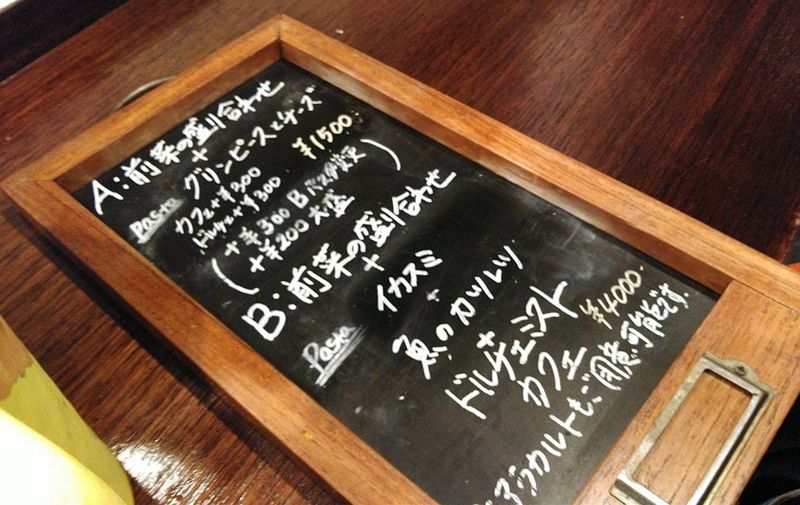 A:前菜の盛り合わせ
+
Pasta グリンピースとチーズ
¥1500
カフェ+¥300
ドルチェ+¥300
(+¥300 Bパスタ変更)
+¥200 大盛
B:前菜の盛り合わせ
+
Pasta イカスミ
+
魚のカツレツ
+
ドルチェミスト
カフェ
¥4000
アラカルトもご用意可能です。